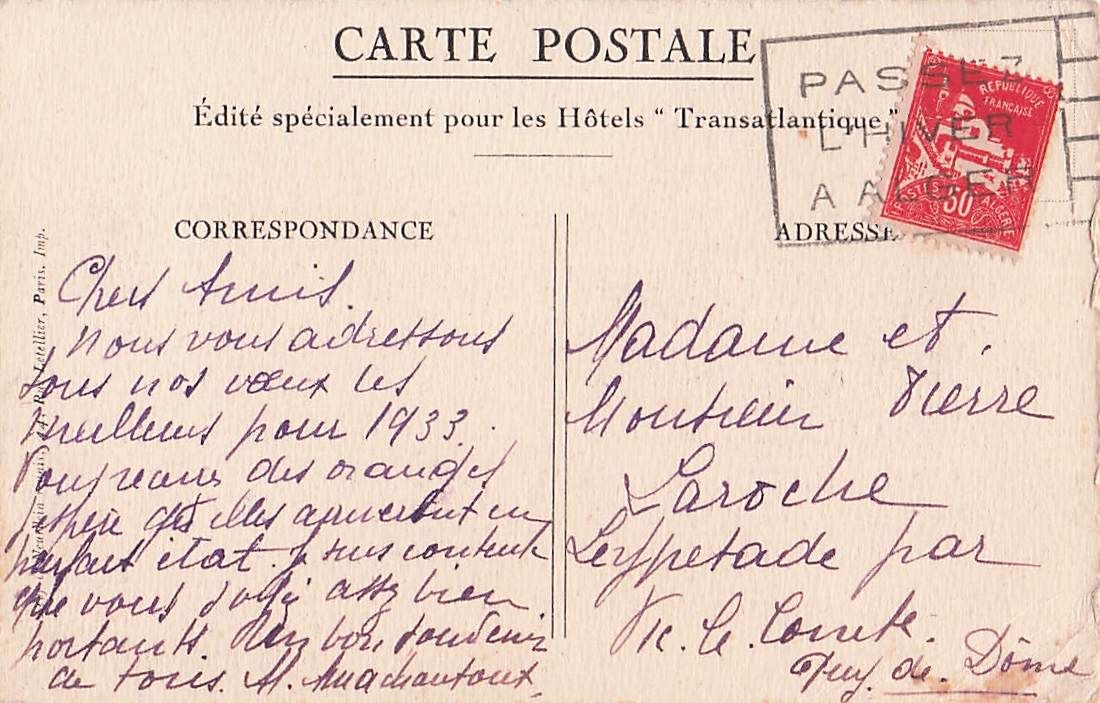 CARTE POSTALE
Édité spécialement pour les Hôtels “ Transatlantique ”
PASSEZ
L'HIVER
A ALGER
REPUBLIQUE
FRANÇAISE
POSTES ALGERIE
50
CORRESPONDANCE
ADRESSE
Letellier, Paris. Imp.
Chers Amis.
nous vous adressons
tous nos vœux les
meilleurs pour 1933.
des oranges
elles arriveront en
parfait état. je suis contente
que vous assez bien
portants. Un bon souvenir
de tous. M.
Madame et
Monsieur Pierre
Laroche
par
Vic. le. Comte.
Puy. de. Dôme